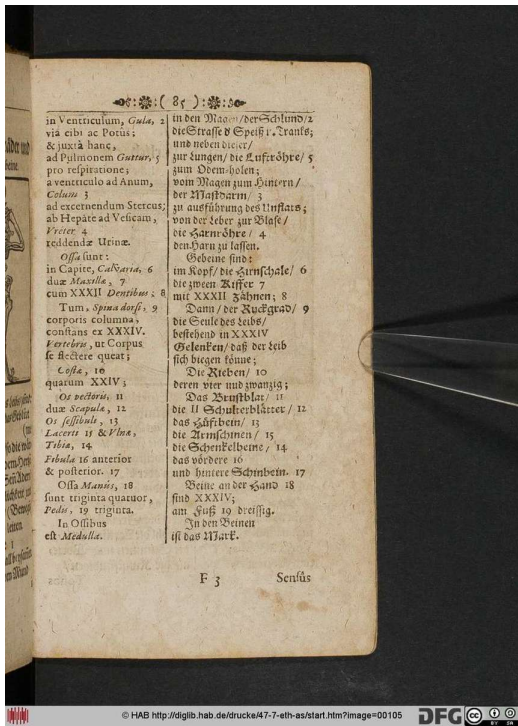 ( 85 )
in Ventriculum, Gula, 2
viâ cibi ac Potûs;
& juxtà hanc,
ad Pulmonem Guttur, 5
pro respiratione;
a ventriculo ad Anum,
Colum 3
ad excernendum Stercus;
ab Hepáte ad Vesicam,
Vreter 4
reddendæ Urinæ.
Ossa sunt:
in Capite, Calvaria, 6
duæ Maxillæ, 7
cum XXXII Dentibus; 8
Tum, Spina dorsi, 9
corporis columna,
constans ex XXXIV.
Vertebris, ut Corpus
se flectere queat;
Costæ, 10
quarum XXIV;
Os pectoris, 11
duæ Scapulæ, 12
Os sessibule, 13
Lacerti 15 & Vlnæ,
Tibiæ, 14
Fibula 16 anterior
& posterior. 17
Ossa Manûs, 18
sunt triginta quatuor,
Pedis, 19 triginta.
In Ossibus
est Medulla.
in den Magen/der Schlund/2
die Strasse d Speiß u. Tranks;
und neben dieser/
zur Lungen/ die Luftröhre/ 5
zum Odem-holen;
vom Magen zum Hintern/
der Mastdarm/ 3
zu ausführung des Unflats;
von der Leber zur Blase/
die Harnröhre/ 4
den Harn zu lassen.
Gebeine sind:
im Kopf/ die Hirnschale/ 6
die zween Kiffer 7
mit XXXII Zähnen; 8
Dann/ der Ruckgrad/ 9
die Seule des Leibs/
bestehend in XXXIV
Gelenken/ daß der Leib
sich biegen könne;
Die Rieben/ 10
deren vier und zwanzig;
Das Brustblat/ 11
die II Schulterblätter/ 12
das Hüftbein/ 13
die Armschinen/ 15
die Schenkelbeine/ 14
das vördere 16
und hintere Schinbein. 17
Beine an der Hand 18
sind XXXIV;
am Fuß 19 dreissig.
In den Beinen
ist das Mark.
F 3 Sensûs
© HAB http://diglib.hab.de/drucke/47-7-eth-as/start.htm?image=00105
DFG
BY SA